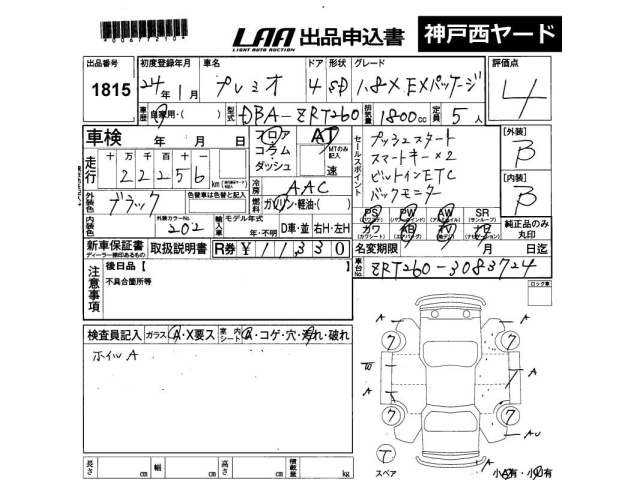 *00677210*
LAA 出品申込書 神戸西ヤード
LIGHT AUTO AUCTION
出品番号 初度登録年月 車名 ドア 形状 グレード 評価点
1815 24年1月 プレミオ 4 SD 1.8X EXパッケージ 4
車歴 自家用・( ) 型式 DBA-ZRT260 排気量 1800cc 定員 5人
車検 年 月 日 フロア AT セールスポイント プッシュスタート [外装]
コラム MTのみ記入 スマートキー×2 B
ダッシュ 速 ビルトインETC [内装]
走行 十万千百十一 バックモニター B
22256 km
冷房 AAC
外装色 ブラック 色替車は色替と記入 燃料 ガソリン・軽油・( )
PS PW AW SR
内装色 外装カラーNo. 202 輸入車 モデル年式 年・不明 D車・並 右H・左H 純正品のみ丸印
新車保証書 取扱説明書 R券 ¥11,330 名変期限 月 日迄
ディーラー捺印あるもの
車台No. ZRT260-3083724
注意事項 後日品【
不具合箇所等
ロック車
検査員記入 ガラス A・X要ス 室内シート A・コゲ・穴・汚れ・破れ
ホイルA
A A
7 7
W A
A A
7 7
A AU
T
スペア
A
小A有・小U有
長さ cm 幅 cm 高さ cm 積載量 kg